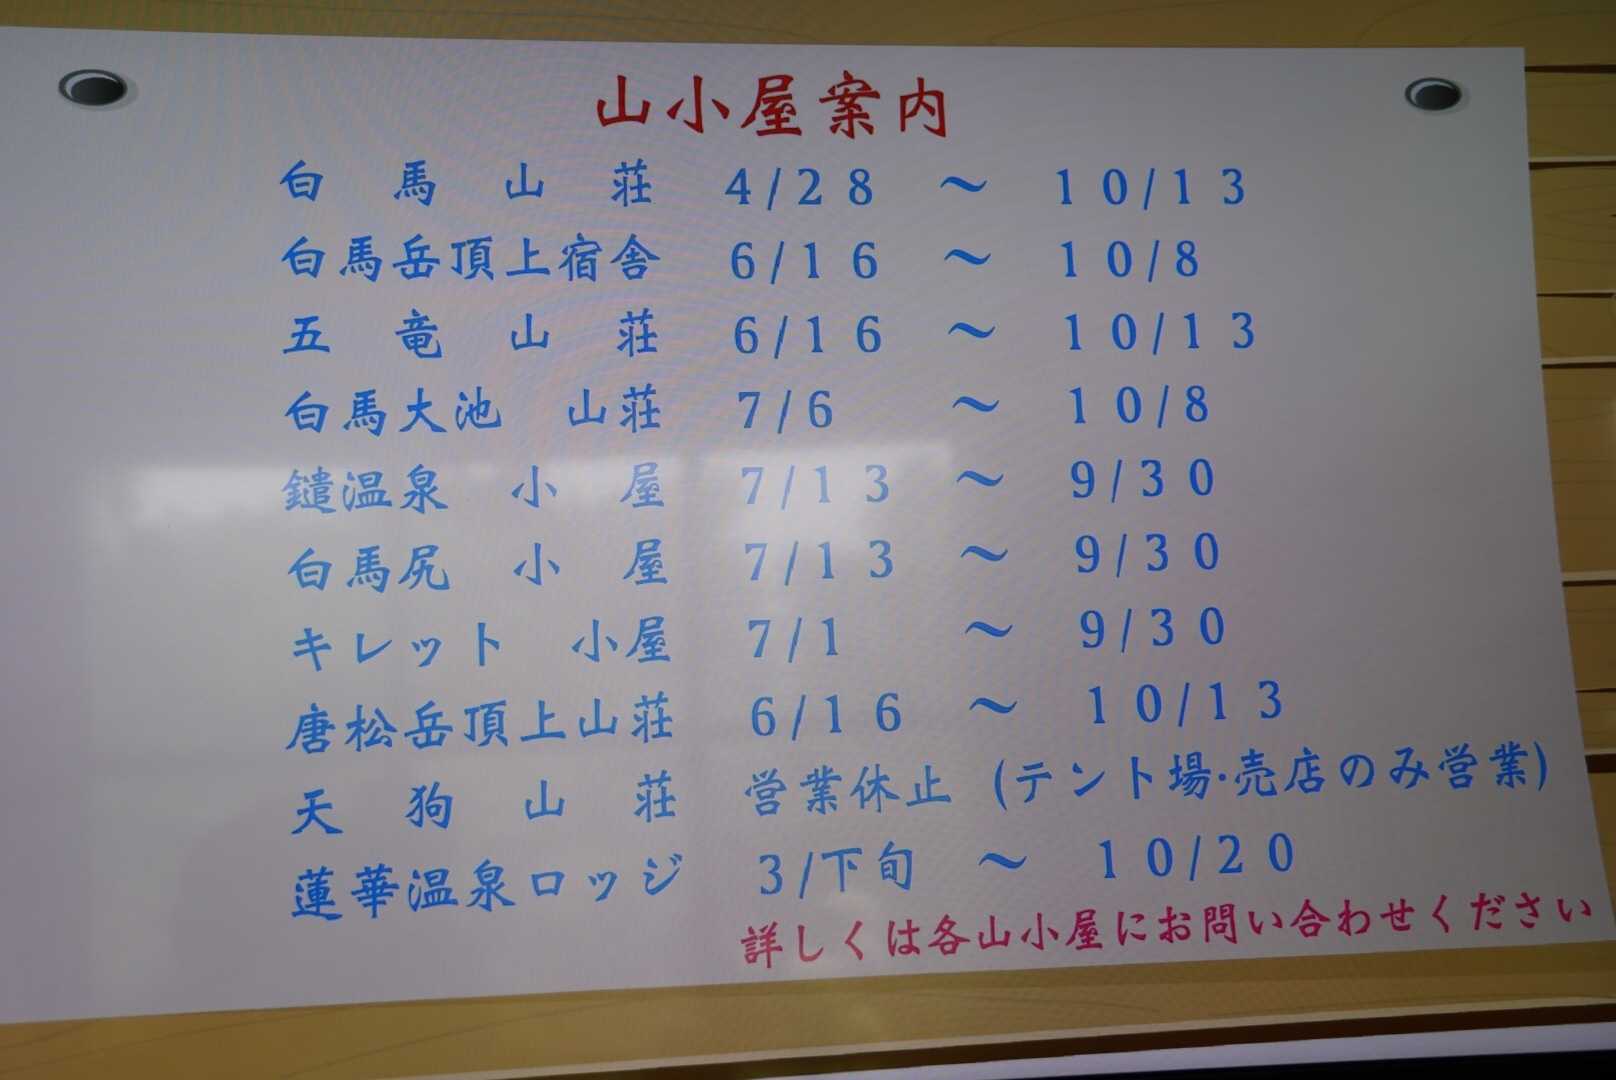 山小屋案内
白馬山荘 4/28 ～ 10/13
白馬岳頂上宿舎 6/16 ～ 10/8
五竜山荘 6/16 ～ 10/13
白馬大池 山荘 7/6 ～ 10/8
鑓温泉 小屋 7/13 ～ 9/30
白馬尻 小屋 7/13 ～ 9/30
キレット 小屋 7/1 ～ 9/30
唐松岳頂上山荘 6/16 ～ 10/13
天狗山荘 営業休止 (テント場・売店のみ営業)
蓮華温泉ロッジ 3/下旬 ～ 10/20
詳しくは各山小屋にお問い合わせください